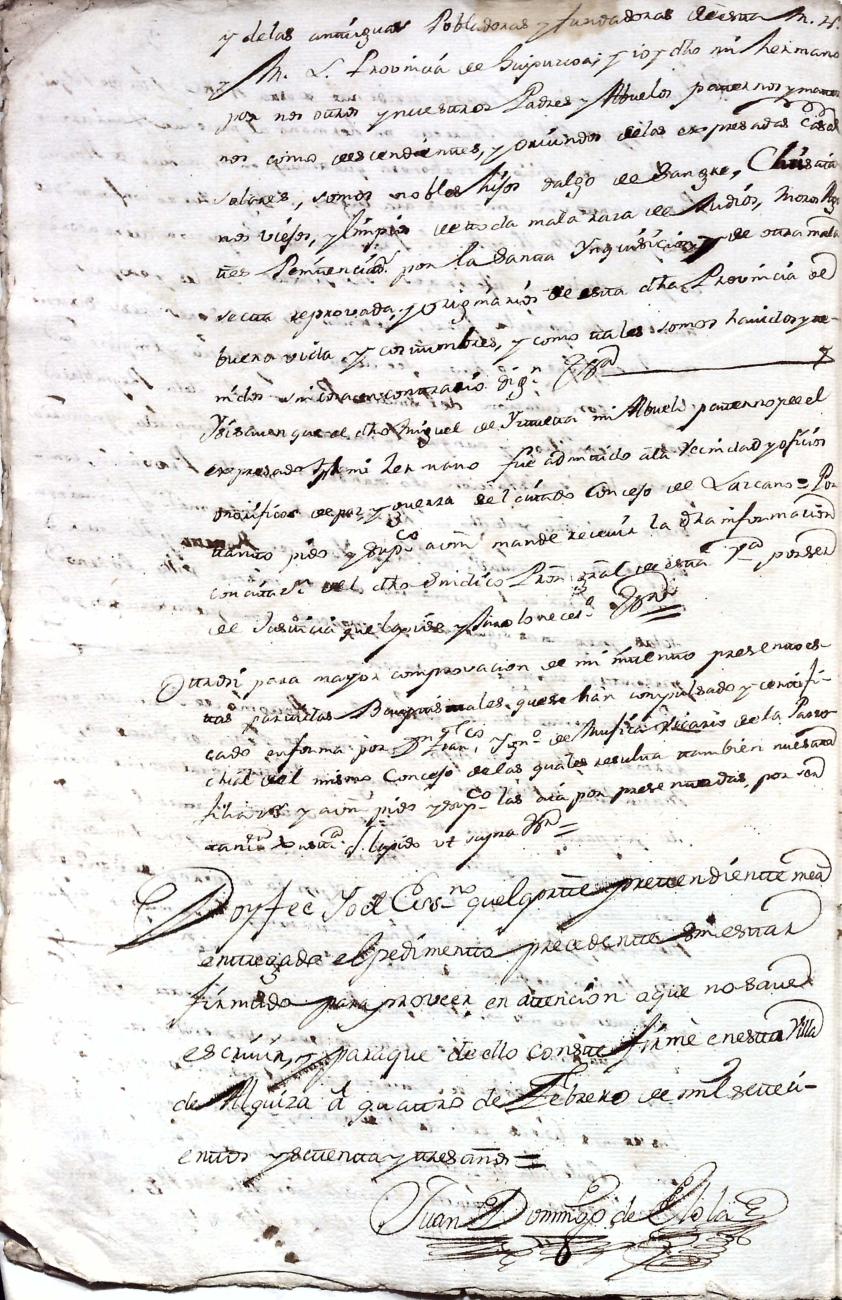 y de las antiguas Pobladoras y fundadoras de esta M. N.
y M. L. Provincia de Guipuzcoa; y io y dho mi hermano
por nos otros y nuestros Padres y Abuelos paternos y mater
nos como descendientes, y oriundos de las expresadas Casas
solares, somos nobles hijos dalgo de sangre, Christia
nos viejos, y limpios de toda mala raza de Judios, Moros, Ago
tes Penitenciads. por la Santa Ynquisicion, y de otra mala
secta reprovada, y originarios de esta dha Provincia de
buena vida y costumbres, y como tales somos havidos y te-
nidos sin cosa en contrario dign
Ysi saven que el dho Miguel de Yrueta mi Abuelo paterno y el
expresado mi hermano fue admitido a la vecindad y oficios
onorificos de paz y guerra del citado Concejo de Lazcano = Por
tanto pido y supco a vm mande recivir la dha informacion
con citazn del dho Sindico Pror gral de esta Va por ser
de Justicia que la pido y juro lo necesso
Otrosi para mayor comprovacion de mi intento presento es-
tas partidas Baptismales, que se han compulsado y certifi-
cado en forma por Dn Franco Ygno de Musica Vicario de la Parro
chial del mismo Concejo de las quales resulta tambien nuestra
filiazon y a vm pido y supco las aia por presentadas, por ser
tanvn Justa q. la pido ut supra
Doy fee Yo el Essno que la parte pretendiente me a
entregado el pedimento precedente sin estar
firmado para proveer en atencion a que no save
escrivir, y para que de ello conste firmè en esta Villa
de Alquiza à quattro de Febrero de mil setteci-
entos y setenta y tres años =
Juan Domingo de Elola